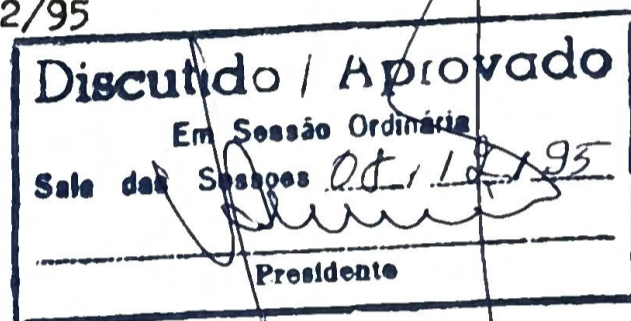 2/95
Discutido / Aprovado
Em Sessão Ordinária
Sala das Sessões / 12 / 95
Presidente